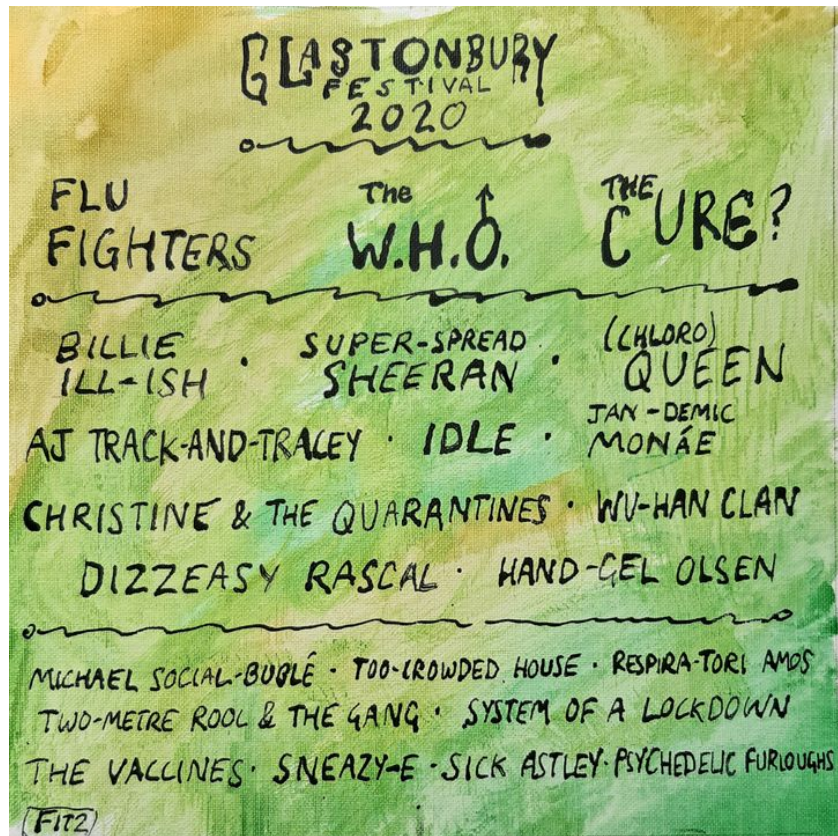 GLASTONBURY
FESTIVAL
2020
FLU FIGHTERS
The W.H.O.
THE CURE?
BILLIE ILL-ISH · SUPER-SPREAD SHEERAN · (CHLORO) QUEEN
AJ TRACK-AND-TRACEY · IDLE · JAN-DEMIC MONÁE
CHRISTINE & THE QUARANTINES · WU-HAN CLAN
DIZZEASY RASCAL · HAND-GEL OLSEN
MICHAEL SOCIAL-BUBLÉ · TOO-CROWDED HOUSE · RESPIRA-TORI AMOS
TWO-METRE ROOL & THE GANG · SYSTEM OF A LOCKDOWN
THE VACCINES · SNEAZY-E · SICK ASTLEY · PSYCHEDELIC FURLOUGHS
FITZ